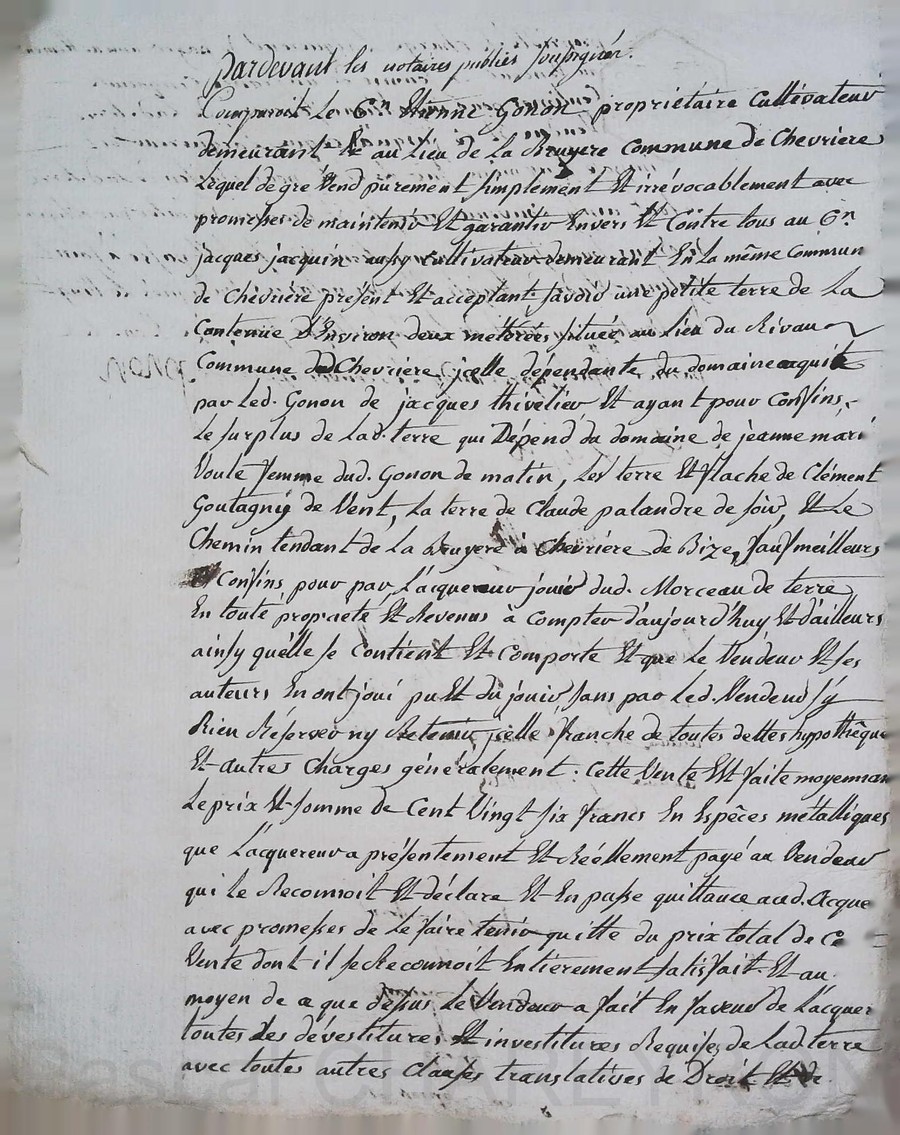 Pardevant les notaires publics soussignés.
Comparoit le Cn Etienne Gonon propriétaire Cultivateur
demeurant au Lieu de la Bruyere Commune de Chevriere
Lequel de gré Vend purement simplement Et irrévocablement avec
promesses de maintenir Et garantir Envers Et Contre tous au Cn
jacques jacquin aussy Cultivateur demeurant En la même Commun
de Chevriere présent Et acceptant savoir une petite terre de La
Contenue D'Environ deux métérées située au Lieu du Rivau
Commune de Chevriere jcelle dépendante du domaine acquit
par Led. Gonon de jacques thivelier Et ayant pour Confins,
Le surplus de Lad. terre qui Dépend du domaine de jeanne mari
Voute femme dud. Gonon de matin, Les terre Et flache de Clément
Goutagny de Vent, La terre de Claude palandre de soir, Et Le
Chemin tendant de La Bruyere à Chevriere de Bize, sauf meilleurs
Confins pour par L'acquereur jouir dud. Morceau de terre
En toute propriété Et Revenus à Compter d'aujourd'huy Et d'ailleurs
ainsy quélle se Contient Et Comporte Et que Le Vendeur Et ses
auteurs En ont joui pu Et du jouir sans par Led. Vendeur s'y
Rien Réserver ny Retenir jcelle franche de toutes dettes hypothêque
Et autres Charges généralement : Cette Vente Est faite moyennan
Le prix Et somme de Cent Vingt six francs En Espêces métalliques
que L'acquereur a présentement Et Réellement payé au Vendeur
qui le Reconnoit Et déclare Et En passe quittance aud. Acque
avec promesses de Le faire tenir quitte du prix total de Ce
Vente dont il se Reconnoit Entierement satisfait. Et au
moyen de ce que dessus Le Vendeur a fait En faveur de L'acquer
toutes Les dévestitures Et investitures Requises de Lad. terre
avec toutes autres Clauses translatives de Droit Et